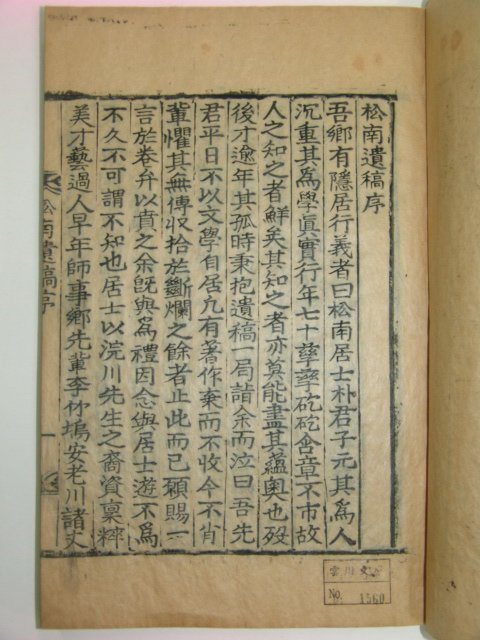 松南遺稿序
吾鄉有隱居行義者曰松南居士朴君子元其爲人
沉重其爲學眞實行年七十孳孳矻矻含章不市故
人之知之者鮮矣其知之者亦莫能盡其蘊奧也歿
後才逾年其孤時秉抱遺稿一局詣余而泣曰吾先
君平日不以文學自居凡有著作棄而不收今不肖
輩懼其無傳收拾於斷爛之餘者止此而已願賜一
言於卷弁以賁之余旣與爲禮因念與居士遊不爲
不久不可謂不知也居士以浣川先生之裔資稟粹
美才藝過人早年師事鄉先輩李竹塢安老川諸丈
松南遺稿序
一
No. 1560